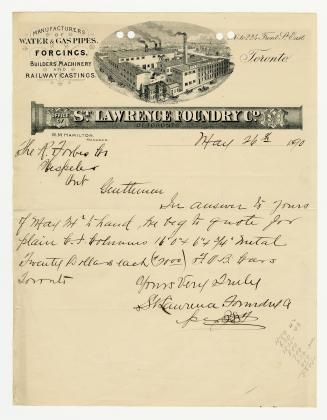 MANUFACTURERS
OF
WATER & GAS PIPES.
FORGINGS,
BUILDERS, MACHINERY
AND
RAILWAY CASTINGS.
224 Front St. East.
Toronto
OFFICE OF
ST. LAWRENCE FOUNDRY CO.
OF TORONTO
W. M. HAMILTON,
MANAGER.
May 26th 1890
The R. Forbes Co
Hespeler
Ont
Gentlemen
In answer to yours
of May to hand. We beg to quote for
plain Columns 16'0 6"0 3/4" Metal
Twenty Dollars each (2000) F.O.B. Cars
Toronto
Yours Very Truly
St Lawrence Foundry Co
per